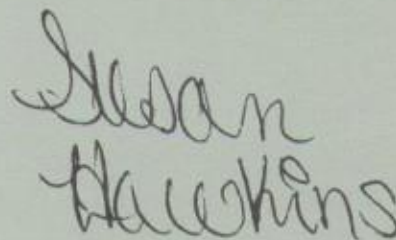 Susan
Hawkins